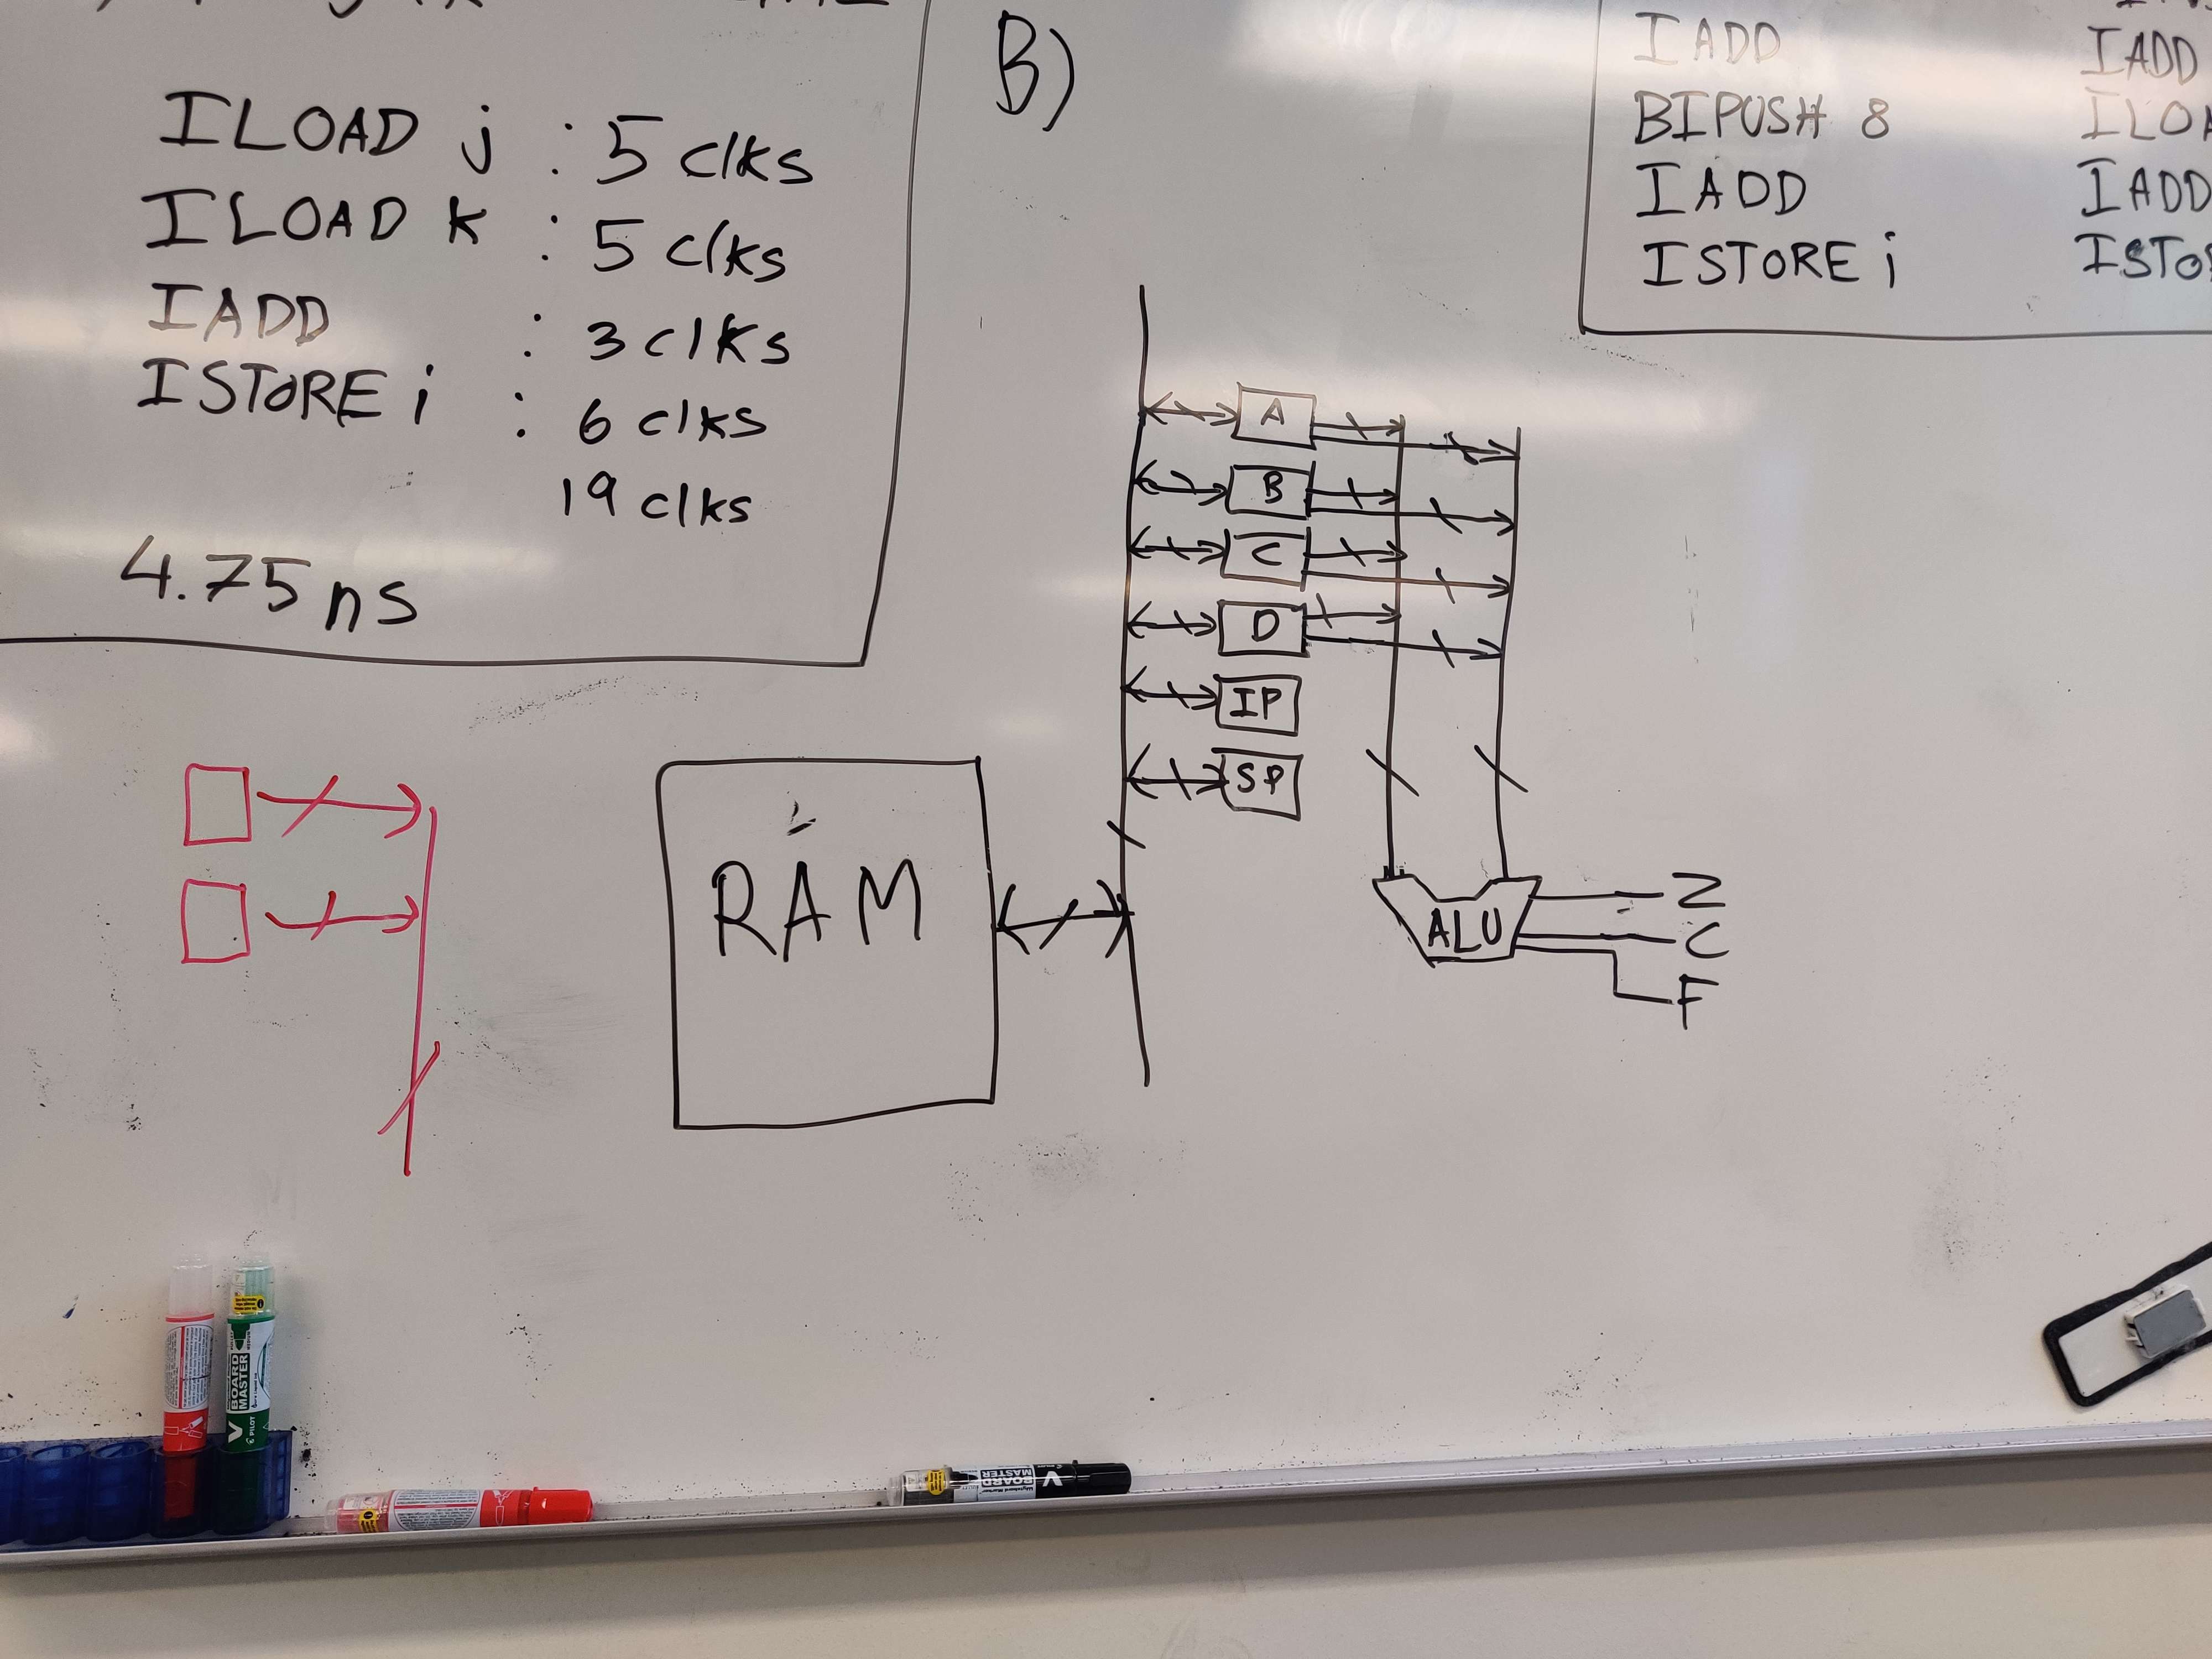 ILOAD j : 5 clks
ILOAD k : 5 clks
IADD : 3 clks
ISTORE i : 6 clks
19 clks
4.75 ns
B)
IADD
BIPUSH 8
IADD
ISTORE i
IADD
IADD
A
B
C
D
IP
SP
RAM
ALU
Z
C
F
V BOARD MASTER
PILOT
V BOARD MASTER